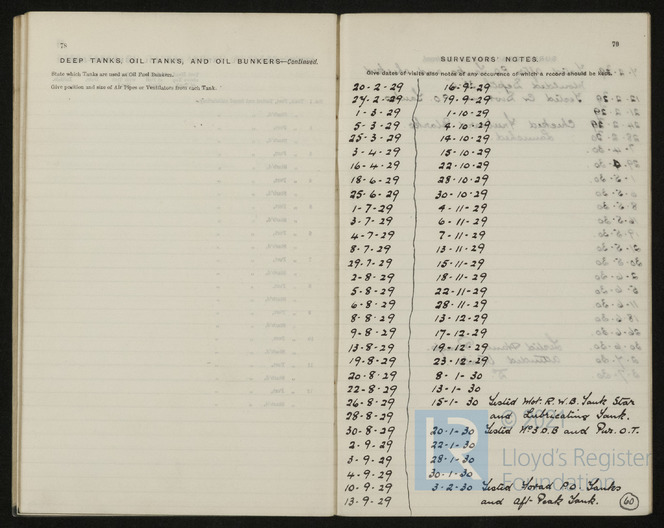 78
DEEP TANKS, OIL TANKS, AND OIL BUNKERS—Continued.
State which Tanks are used as Oil Fuel Bunkers.
Give position and size of Air Pipes or Ventilators from each Tank.
79
SURVEYORS' NOTES.
Give dates of visits also notes of any occurence of which a record should be kept.
20-2-29 16-9-29
27-2-29 79-9-29
1-3-29 1-10-29
5-3-29 4-10-29
25-3-29 14-10-29
3-4-29 15-10-29
16-4-29 22-10-29
18-6-29 28-10-29
25-6-29 30-10-29
1-7-29 4-11-29
3-7-29 6-11-29
4-7-29 7-11-29
8-7-29 13-11-29
29-7-29 15-11-29
2-8-29 18-11-29
5-8-29 22-11-29
6-8-29 28-11-29
8-8-29 13-12-29
9-8-29 17-12-29
13-8-29 19-12-29
19-8-29 23-12-29
20-8-29 8-1-30
22-8-29 13-1-30
26-8-29 15-1-30 Tested Wat. R. W. B. Tank Star
28-8-29 and Lubricating Tank.
30-8-29 20-1-30 Tested Nº3 D.B and Pur. O.T.
2-9-29 22-1-30
3-9-29 28-1-30
4-9-29 30-1-30
10-9-29 3-2-30 Tested Forad P.D. Tanks
13-9-29 and Aft Peak Tank.
60
LR
© 2021
Lloyd's Register
Foundation